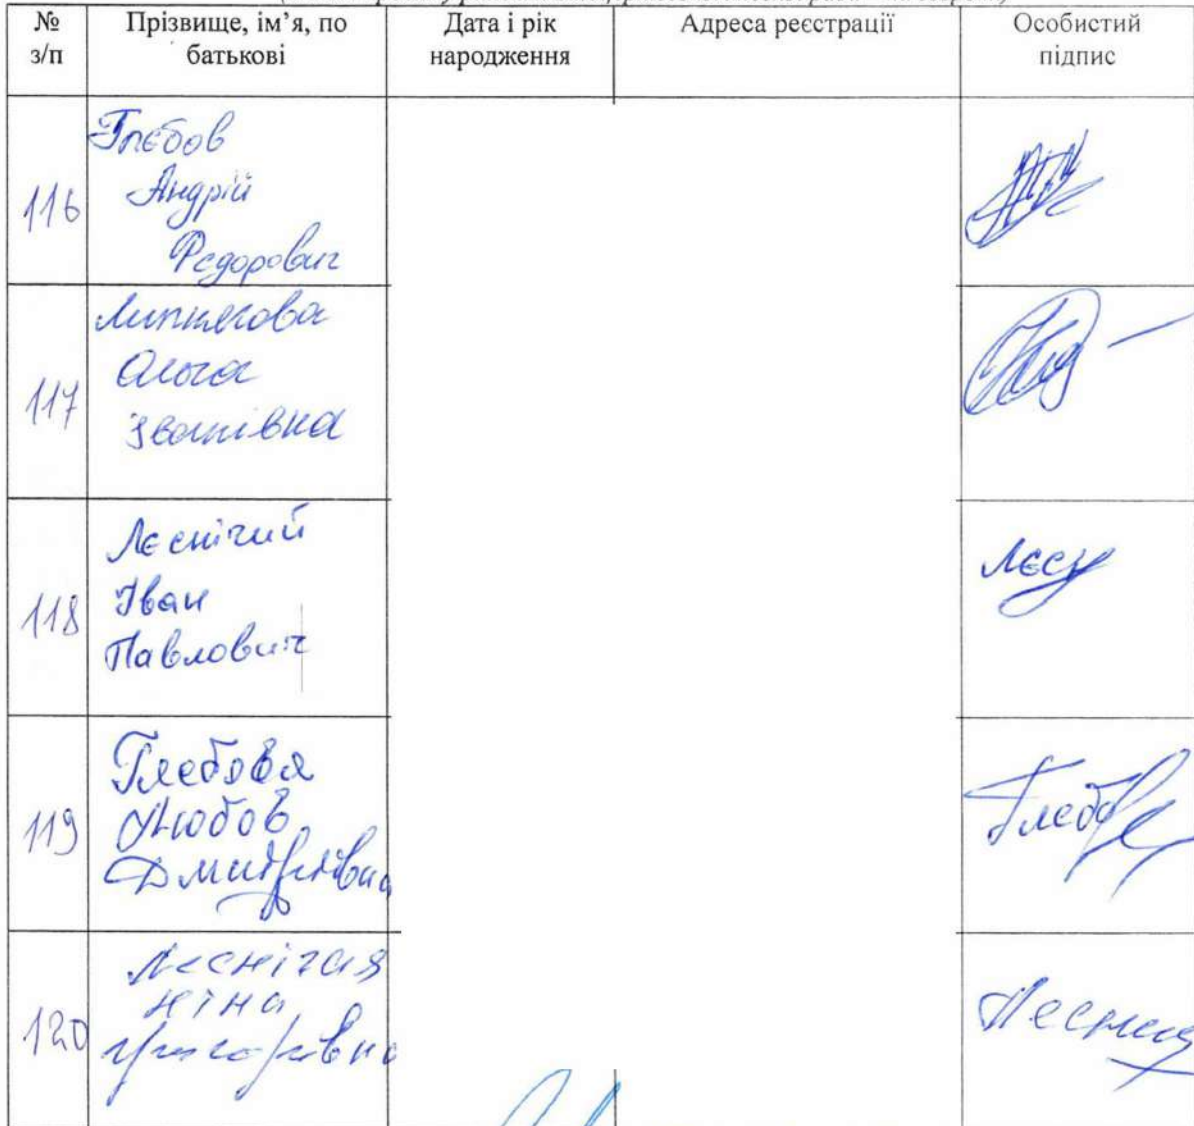 № з/п
Прізвище, ім’я, по батькові
Дата і рік народження
Адреса реєстрації
Особистий підпис
116
Глєбов
Андрій
Федорович
117
Ольга
Іванівна
118
Лєснічий
Іван
Павлович
119
Глебова
Любов
Дмитрівна
Глебо
120
Леснічая
Ніна
Григорівна